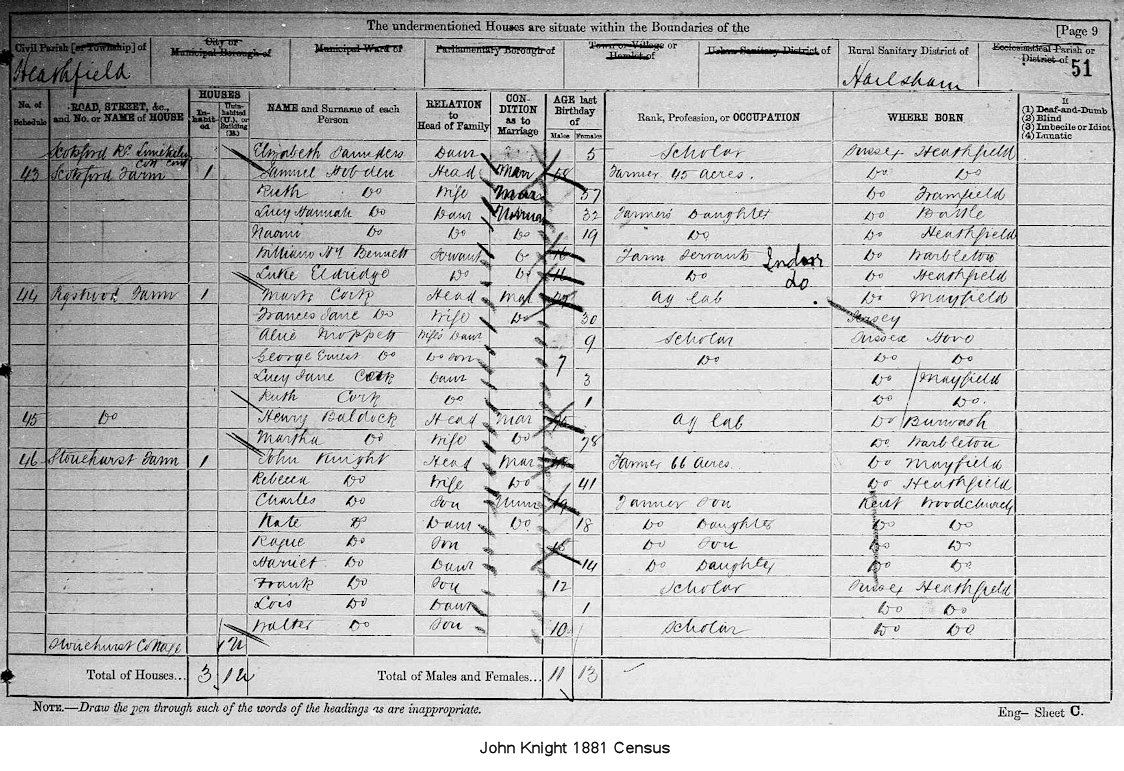 The undermentioned Houses are situate within the Boundaries of the
[Page 9
Civil Parish [or Township] of
City or Municipal Borough of
Municipal Ward of
Parliamentary Borough of
Town or Village or Hamlet of
Urban Sanitary District of
Rural Sanitary District of
Ecclesiastical Parish or District of
Heathfield
Hailsham
51
No. of Schedule
ROAD, STREET, &c., and No. or NAME of HOUSE
HOUSES
Inhabited
Uninhabited (U.), or Building (B.)
NAME and Surname of each Person
RELATION to Head of Family
CONDITION as to Marriage
AGE last Birthday of
Males
Females
Rank, Profession, or OCCUPATION
WHERE BORN
If
(1) Deaf-and-Dumb
(2) Blind
(3) Imbecile or Idiot
(4) Lunatic
Elizabeth Saunders Daur 5 Scholar Sussex Heathfield
43 Scotsford Farm 1 Samuel Hobden Head Mar Farmer 45 acres. Do Do
Ruth Do Wife Mar 57 Do Framfield
Lucy Hannah Do Daur 32 Farmer's Daughter Do Battle
Naomi Do Do Do 19 Do Do Heathfield
William Hy Bennett Servant Do 16 Farm Servant Indoor Do Warbleton
Luke Eldridge Do Do Do do. Do Heathfield
44 Farm 1 Mark Cork Head Mar Ag Lab Do Mayfield
Frances Jane Do Wife Do 30 Jersey
Alice Moppett Wife's Daur 9 Scholar Sussex Hove
George Ernest Do Do Son 7 Do Do Do
Lucy Jane Cork Daur 3 Do Mayfield
Ruth Cork Do 1 Do Do.
45 Do Henry Baldock Head Mar Ag Lab Do Burwash
Martha Do Wife Do 78 Do Warbleton
46 Stonehurst Farm 1 John Knight Head Mar Farmer 66 Acres. Do Mayfield
Rebecca Do Wife Do 41 Do Heathfield
Charles Do Son Unm 19 Farmer Son Kent Woodchurch
Kate Do Daur Do 18 Do Daughter Do Do
Do Son Do Son Do Do
Harriet Do Daur 14 Do Daughter Do Do
Frank Do Son 12 Scholar Sussex Heathfield
Lois Do Daur 1 Do Do
Walter Do Son 10 Scholar Do Do
Stonehurst Cottage 1 U
Total of Houses... 3 1 U
Total of Males and Females... 11 13
NOTE.—Draw the pen through such of the words of the headings as are inappropriate.
Eng— Sheet C.
John Knight 1881 Census